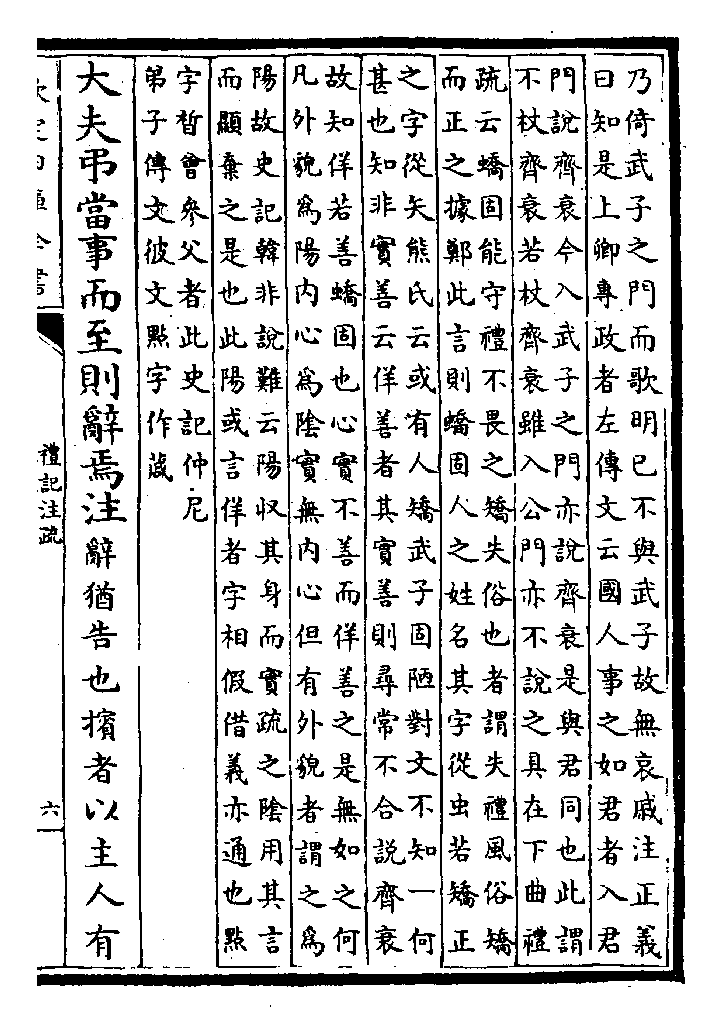 乃倚武子之門而歌明已不與武子故無哀戚注正義
曰知是上卿専政者左傳文云國人事之如君者入君
門說齊衰今入武子之門亦說齊衰是與君同也此謂
不杖齊衰若杖齊衰雖入公門亦不說之具在下曲禮
疏云蟜固能守禮不畏之矯失俗也者謂失禮風俗矯
而正之據鄭此言則蟜固人之姓名其字從虫若矯正
之字從矢熊氏云或有人矯武子固陋對文不知一何
甚也知非實善云佯善者其實善則尋常不合說齊衰
故知佯若善蟜固也心實不善而佯善之是無如之何
凡外貌為陽内心為陰實無内心但有外貌者謂之為
陽故史記韓非說難云陽収其身而實疏之陰用其言
而顯棄之是也此陽或言佯者字相假借義亦通也點
字晳曾參父者此史記仲尼
弟子傳文彼文點字作蒧
大夫弔當事而至則辭焉注辭猶告也擯者以主人有
禮記注疏
六